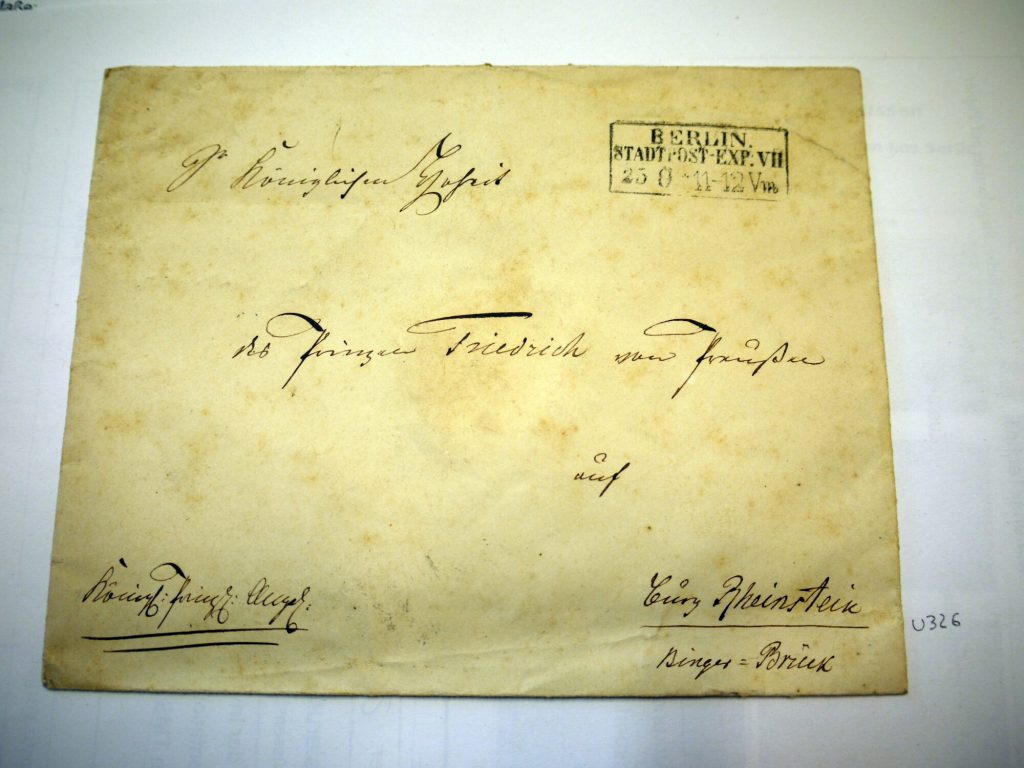 BERLIN.
STADTPOST-EXP: VII
25 8 11-12 Vm
Sr Königlichen Hoheit
des Prinzen Friedrich von Preußen
auf
Königl: Prinzl: Angel:
Burg Rheinstein
Binger=Brück
U326